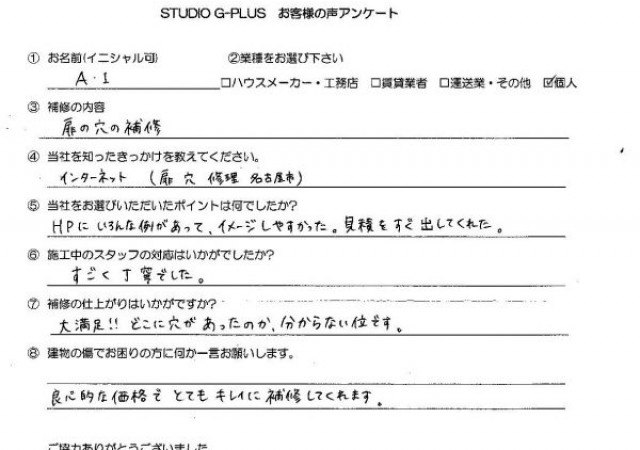 STUDIO G-PLUS お客様の声アンケート
① お名前(イニシャル可) ②業種をお選び下さい
A・I □ハウスメーカー・工務店 □賃貸業者 □運送業・その他 ☑個人
③ 補修の内容
扉の穴の補修
④ 当社を知ったきっかけを教えてください。
インターネット (扉 穴 修理 名古屋市)
⑤ 当社をお選びいただいたポイントは何でしたか?
HPにいろんな例があって、イメージしやすかった。見積をすぐ出してくれた。
⑥ 施工中のスタッフの対応はいかがでしたか?
すごく丁寧でした。
⑦ 補修の仕上がりはいかがですか?
大満足!! どこに穴があったのか、分からない位です。
⑧ 建物の傷でお困りの方に何か一言お願いします。
良心的な価格でとてもキレイに補修してくれます。
ご協力ありがとうございました